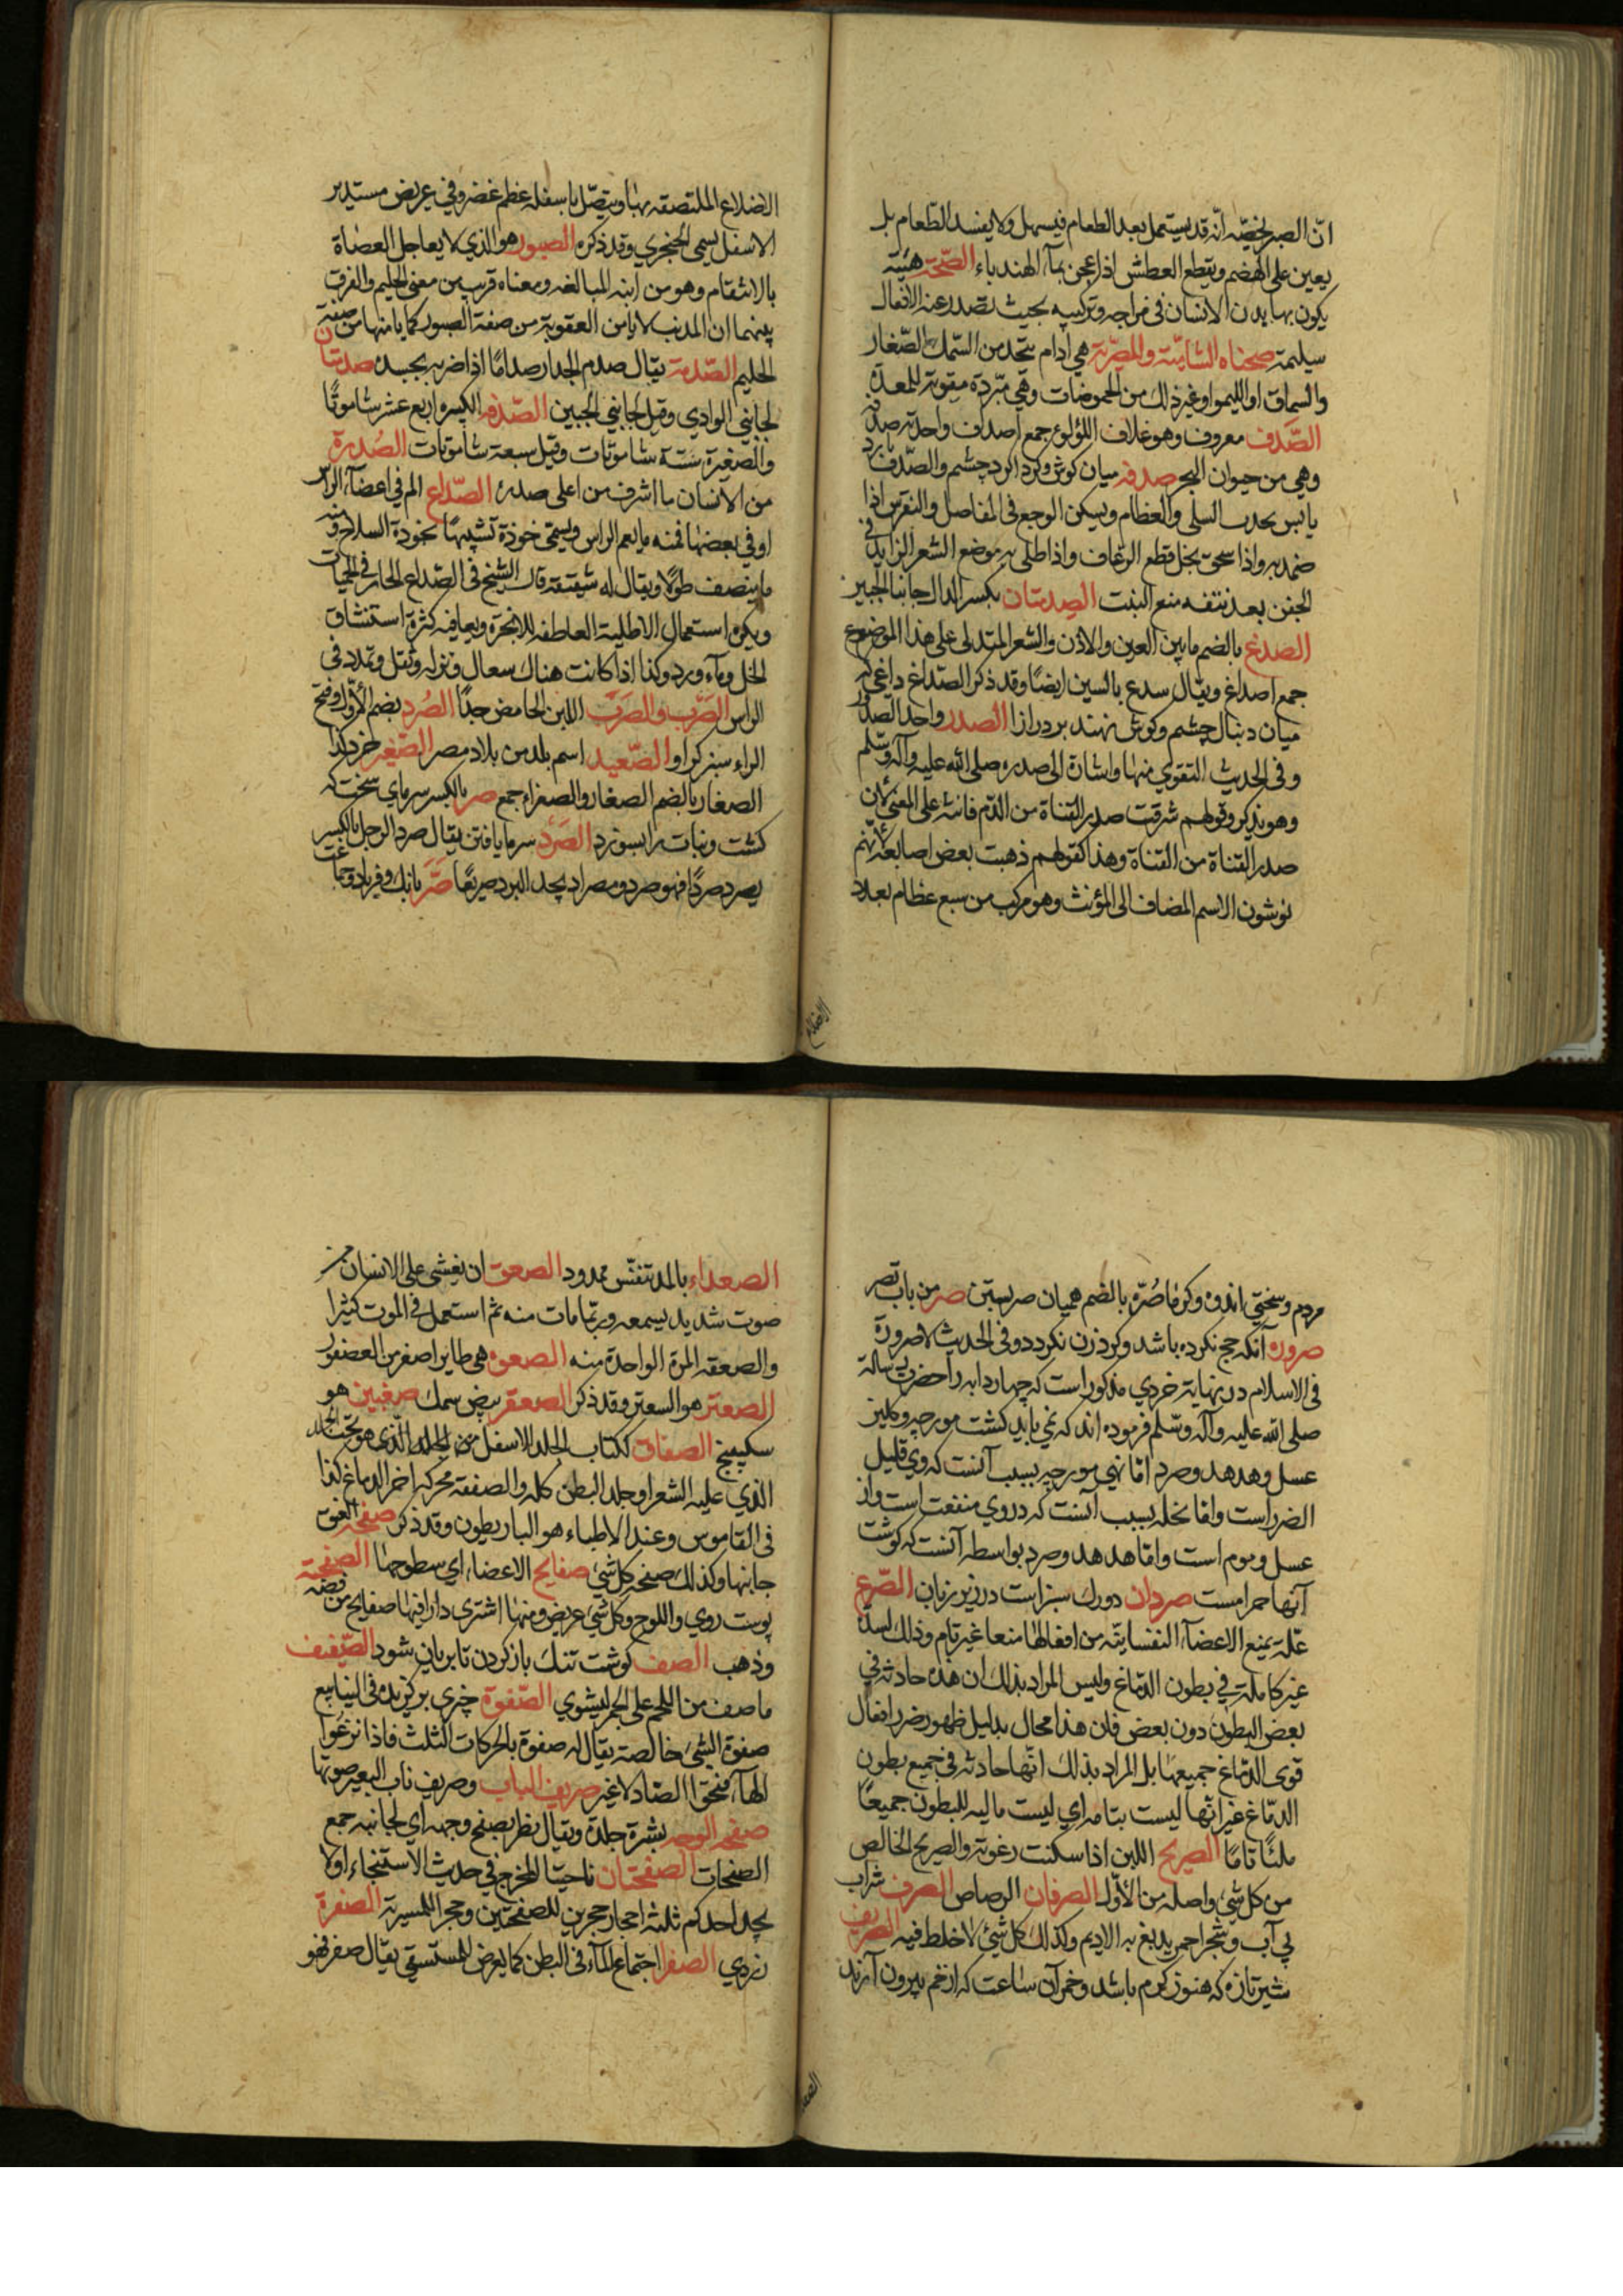 انّ الصبر لخصّه انّه قد يستعمل بعد الطعام فيسهل ولا يفسد الطعام بل
يعين على الهضم ويقطع العطش اذا عجن بمآء الهندباء الصّحّة هيئة
يكون بها بدن الانسان فى مزاجه وتركيبه بحيث تصدر عنه الافعال
سليمة صحناه الشاميّة والمصريّة هي ادام يتخذ من السّمك الصّغار
والسماق او الليمو او غير ذلك من الحموضات وهي مبرّدة مقوية للمعدة
الصَّدَف معروف وهو غلاف اللؤلؤ جمع اصداف واحدته صدفة
وهي من حيوان البحر صدفه ميان كوش وكرد اكرد چشم والصّدف بارد
يابس يجذب السلى والعظام ويسكن الوجع فى المفاصل والنقرس اذا
ضمد به واذا سحق بخل قطع الرعاف واذا طلى به موضع الشعر الزايد فى
الجفن بعد نتفه منع النبت الصِدمتان بكسر الدال جانبا الجبين
الصدغ بالضم ما بين العين والاذن والشعر المتدلى على هذا الموضع
جمع اصداغ ويقال سدغ بالسين ايضًا وقد ذكر الصّداغ داغى كه
ميان دنبال چشم وكوش نهند بر درازا الصدر واحد الصدور
وفى الحديث التقوى منها واشارة الى صدره صلى الله عليه وآله وسلّم
وهو يذكر وقولهم شرقت صدر القناة من الدّم فانث على المعنى لان
صدر القناة من القناة وهذا كقولهم ذهبت بعض اصابعه لانهم
يونثون الاسم المضاف الى المؤنث وهو مركب من سبع عظام بعدد
الاضلاع
الاضلاع الملتصقه بها ويتصّل باسفله عظم غضروفي عريض مستدير
الاسفل يسمى الخنجري وقد ذكره الصبور هو الذي لا يعاجل العضاة
بالانتقام وهو من ابنه المبالغه ومعناه قريب من معنى الحليم والفرق
بينهما ان المذنب لا يامن العقوبة من صفة الصبور كما يامنها من صفة
الحليم الصّدمة يقال صدم الجدار صدامًا اذا ضربه بجسده صدمتان
لجانبي الوادي وقيل لجانبي الجبين الكبير واربع عشر شاموتًا
والصغيرة ستة شاموتات وقيل سبعة شاموتات الصُدرة
من الانسان ما اشرف من اعلى صدره الصّداع الم في اعضآء الراس
او في بعضها فمنه ما يعم الراس ويسمّى خوذة تشبيهًا بخوذة السلاح ومنه
ما ينصف طولًا ويقال له شقيقة قال الشيخ فى الصّداع الحار فى الحميات
ويكره استعمال الاطلية العاطفه للابخرة ويعافيه كثرة استنشاق
الخل ومآء ورد وكذا اذا كانت هناك سعال ونزله وثقل وتمدد فى
الراس الصَرْب والصَرَب اللبن الحامض جدًّا الصُرد بضم الاوّل وفتح
الراء سبز كرا او الصّعيد اسم بلد من بلاد مصر الصّغير خرد كذا
الصغار بالضم الصغار والصغراء جمع صر بالكسر سرماي سخت كه
كشت ونبات را بسوزد الصَرَد سرما يافتن يقال صرد الرجل بالكسر
يصرد صردًا فهو صرد ومصراد يجد البرد صريعًا صَرَّ بانك وفرياد وجماعت
مردم وسختى اندوه وكرما صُرّه بالضم هميان صر بستن صر من باب نصر
صروره آنكه حج نكرده باشد وكرد زن نكردد وفى الحديث لا صرورة
فى الاسلام در نهاية خردي مذكور است كه چهار دابه را حضرت رسالة
صلى الله عليه وآله وسلّم فرموده اند كه نمي بايد كشت مورچه وكليز
عسل وهدهد وصرد امّا نهي مورچه بسبب آنست كه وي قليل
الضرر است وامّا نحله بسبب آنست كه در وي منفعت است واز
عسل وموم است وامّا هدهد وصرد بواسطه آنست كه كوشت
آنها حرامست صردان دو رك سبز است در زير زبان الصّرع
علّة يمنع الاعضآء النفسانيّة من افعالها منعا غير تام وذلك لسدّة
غير كاملة في بطون الدماغ وليس المراد بذلك ان هذه حادثه في
بعض البطون دون بعض فان هذا محال بدليل ظهور ضرر افعال
قوى الدّماغ جميعها بل المراد بذلك انّها حادثه في جميع بطون
الدمّاغ غير انّها ليست بتامه اي ليست ماليه للبطون جميعًا
ملئًا تامًا الصريح اللبن اذا سكنت رغوته والصريح الخالص
من كل شيئ واصله من الاوّل الصرفان الرصاص الصرف شراب
بي آب وشجر احمر يدبغ به الاديم وكذلك كل شيئ لا خلط فيه الصريف
شير تازه كه هنوز كرم باشد وخمر آن ساعت كه از خم بيرون آرند
الصعداء
الصعداء بالمد تنفّس ممدود الصعق ان يغشى على الانسان من
صوت شديد يسمعه وربّما مات منه ثم استعمل فى الموت كثيرا
والصعقه المرة الواحدة منه الصعوه هى طاير اصغر من العصفور
الصعتر هو السعتر وقد ذكر الصعقر بيض سمك صغبين هو
سكبينج الصفاق ككتاب الجلد الاسفل من الجلد الذى هو تحت الجلد
الذي عليه الشعر او جلد البطن كله والصفقه محركه اخر الدماغ كذا
فى القاموس وعند الاطباء هو الباريطون وقد ذكر صفحه العنق
جانبها وكذلك صفحه كل شيئ صفايح الاعضاء اي سطوحها الصفيحة
پوست روي واللوح وكل شيئ عريض ومنها اشترى دارا فيها صفايح من فضه
وذهب الصف كوشت تنك باز كردن تا بريان شود الصّفيف
ما صف من اللحم على الجمر ليشوي الصّفوة چيزي بركزيده فى الينابيع
صفوة الشيئ خالصته يقال له صفوة بالحركات الثلث فاذا نزعوا
الهآء فتحوا الصّاد لا غير صريف الباب وصريف ناب البعير صوتها
صفحه الوجه بشرة جلده ويقال نظر بصفح وجهه اي لجانبه جمع
الصفحات الصفحتان ناحيتا المخرج في حديث الاستنجاء اولا
يجد احدكم ثلثه احجار حجرين للصفحتين وحجر للمسربة الصفرة
زردي الصفر اجتماع المآء فى البطن كما يعرض للمستسقى يقال صفر فهو